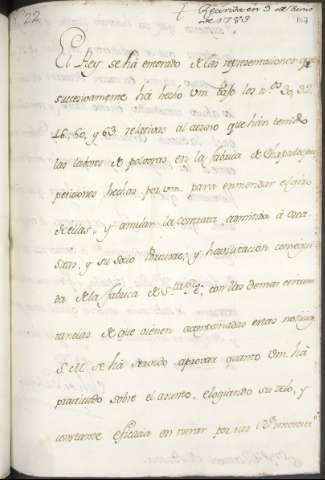 22
Recivida en 3 de Junio
de 1783
El Rey se há enterado de las representaciones que
sucesivamente há hecho vm bajo los n.os 30, 32
46, 60, y 63 relativas al atraso que hán tenido
las labores de polvoras en la fabrica de Chapultepeq
peticiones hechas por vm. para enmendar el giro
de ellas, y anular la contrata
y su solo y havilitacion consegui
da de la fabrica de S.ta Fé; con las demas circuns
tancias de que vienen acompañadas estas noticias
S. M. se há servido aprovar quanto vm. há
practicado sobre el asunto, elogiando su zelo, y
constante eficacia en mirar por sus R.s intereses